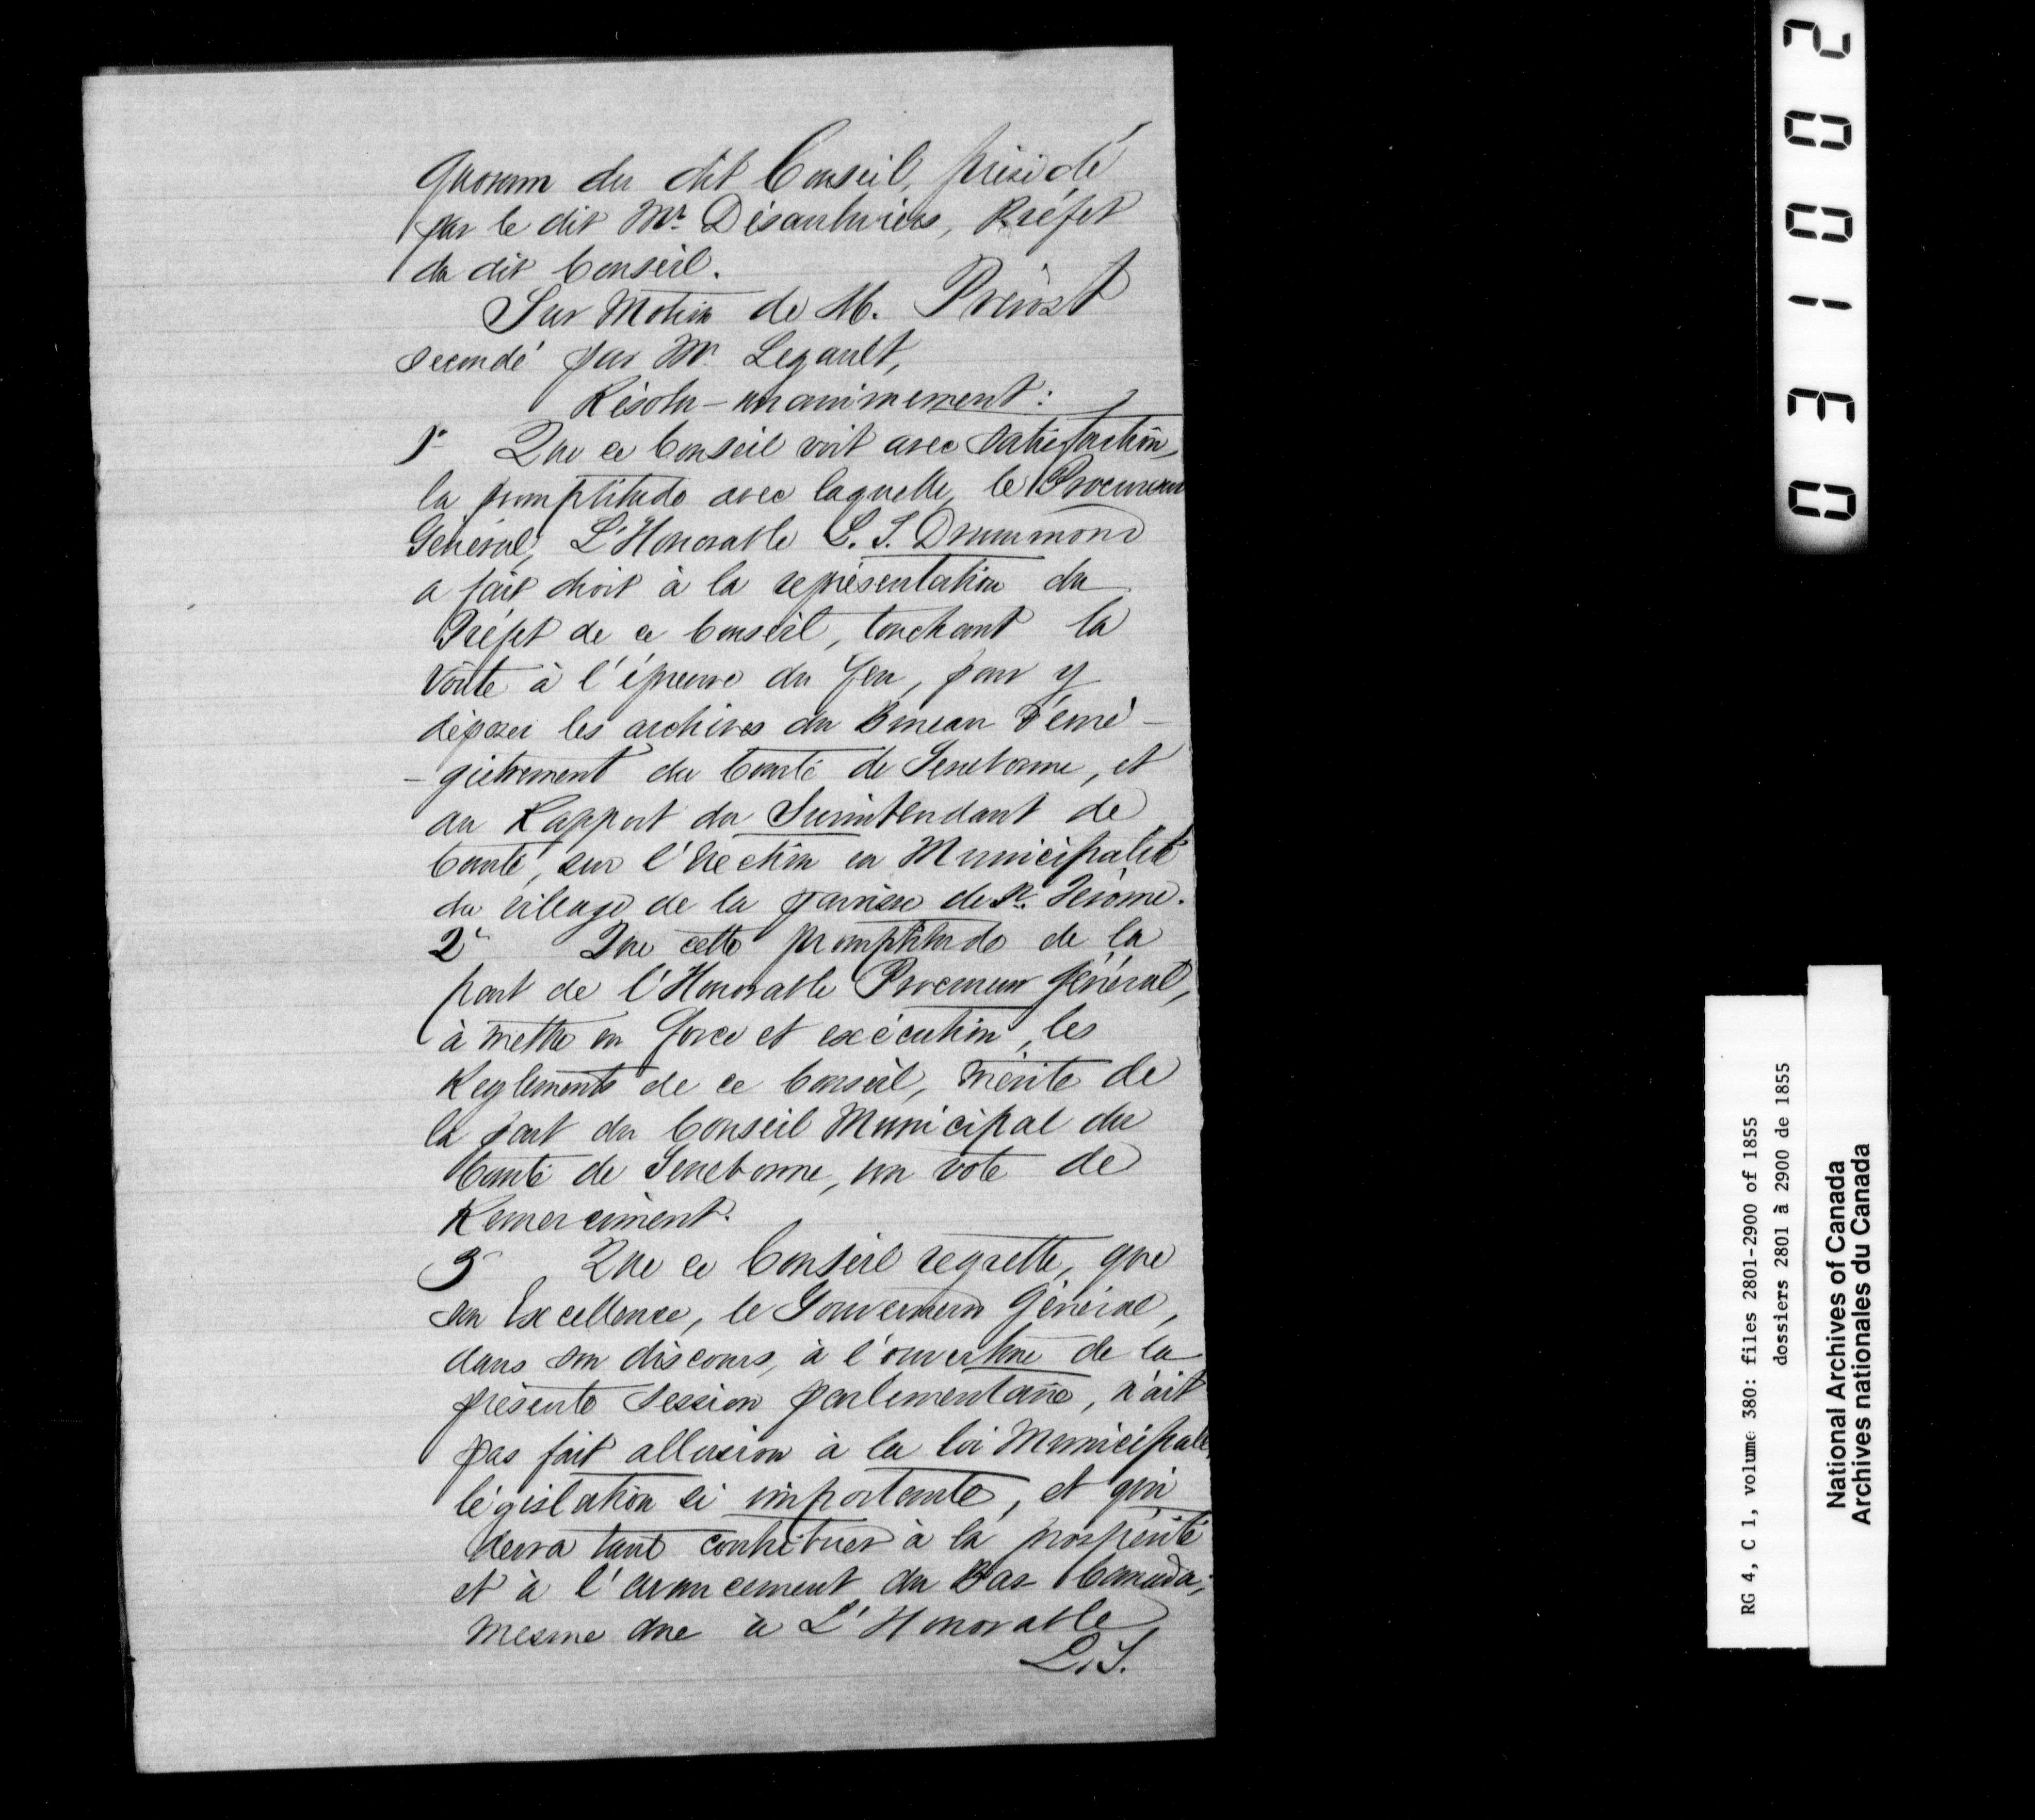 Quorum du dit Conseil, présidé
par le dit Mr. Désaulniers, Préfet
du dit Conseil.
Sur Motion de M. Prévost
secondé par Mr. Legault,
Résolu - unanimement :
1° Que ce Conseil voit avec satisfaction,
la promptitude avec laquelle, le Procureur
Général, L'Honorable L. T. Drummond
a fait droit à la représentation du
Préfet de ce Conseil, touchant la
Voûte à l'épreuve du feu, pour y
déposer les archives du Bureau d'enré-
-gistrement du Comté de Terrebonne, et
au Rapport du Surintendant de
Comté, sur l'érection en Municipalité
du village de la paroisse de St. Jérôme.
2° Que cette promptitude de la
part de l'Honorable Procureur Général,
à mettre en force et exécution, les
Reglements de ce Conseil, mérite de
la part du Conseil Municipal du
Comté de Terrebonne, un vote de
Remerciment.
3° Que ce Conseil regrette, que
son Excellence, le Gouverneur Général,
dans son discours, à l'ouverture de la
présente session parlementaire, n'ait
pas fait allusion à la loi Municipale,
législation si importante, et qui
devra tant contribuer à la prospérité
et à l'avancement du Bas-Canada;
mesure due à L'Honorable
L. T.
031002
RG 4, C 1, volume 380: files 2801-2900 of 1855
dossiers 2801 à 2900 de 1855
National Archives of Canada
Archives nationales du Canada